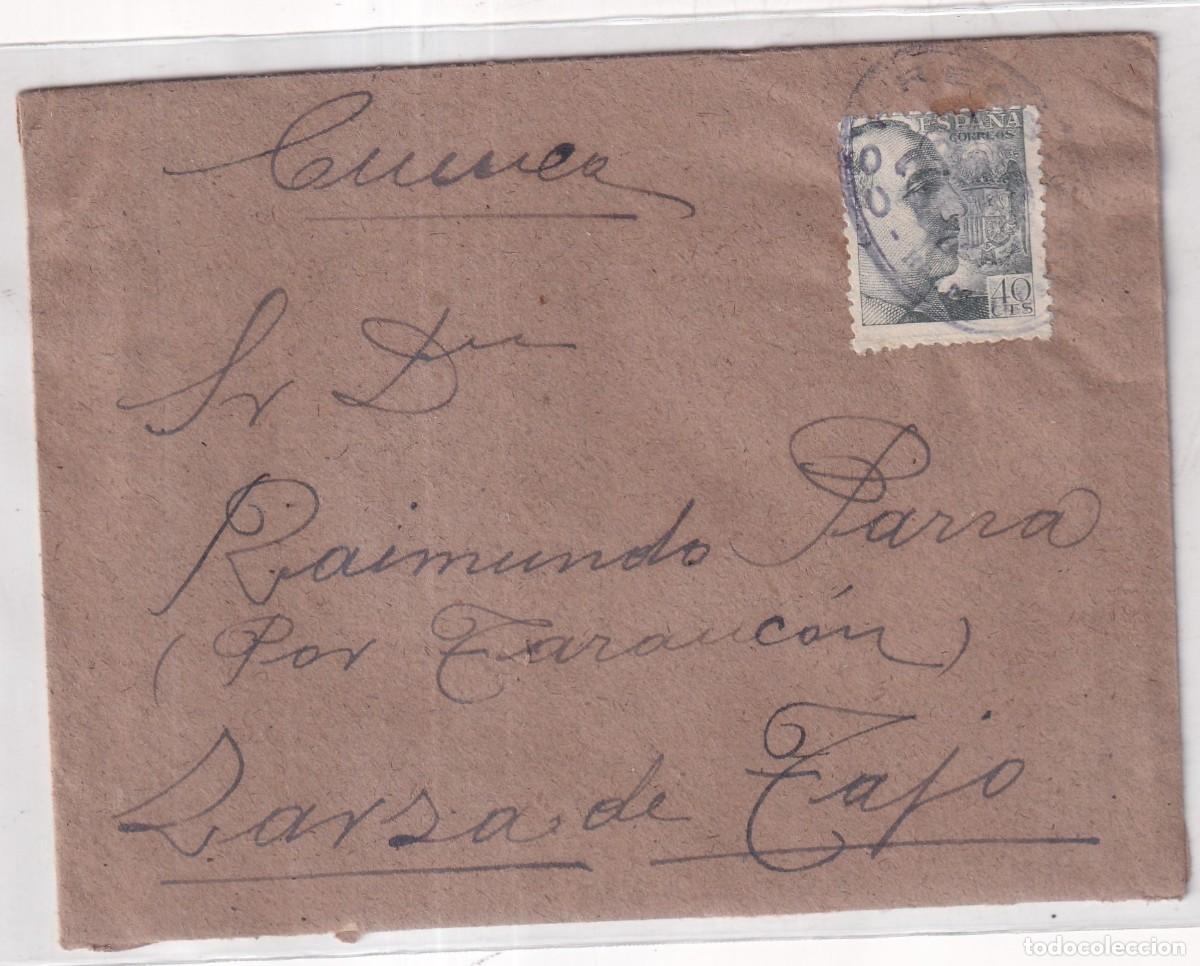 Cuenca
ESPAÑA
CORREOS
40
CTS
Sr Dn
Raimundo Parra
(Por Tarancón)
Zarza de Tajo
todocoleccion